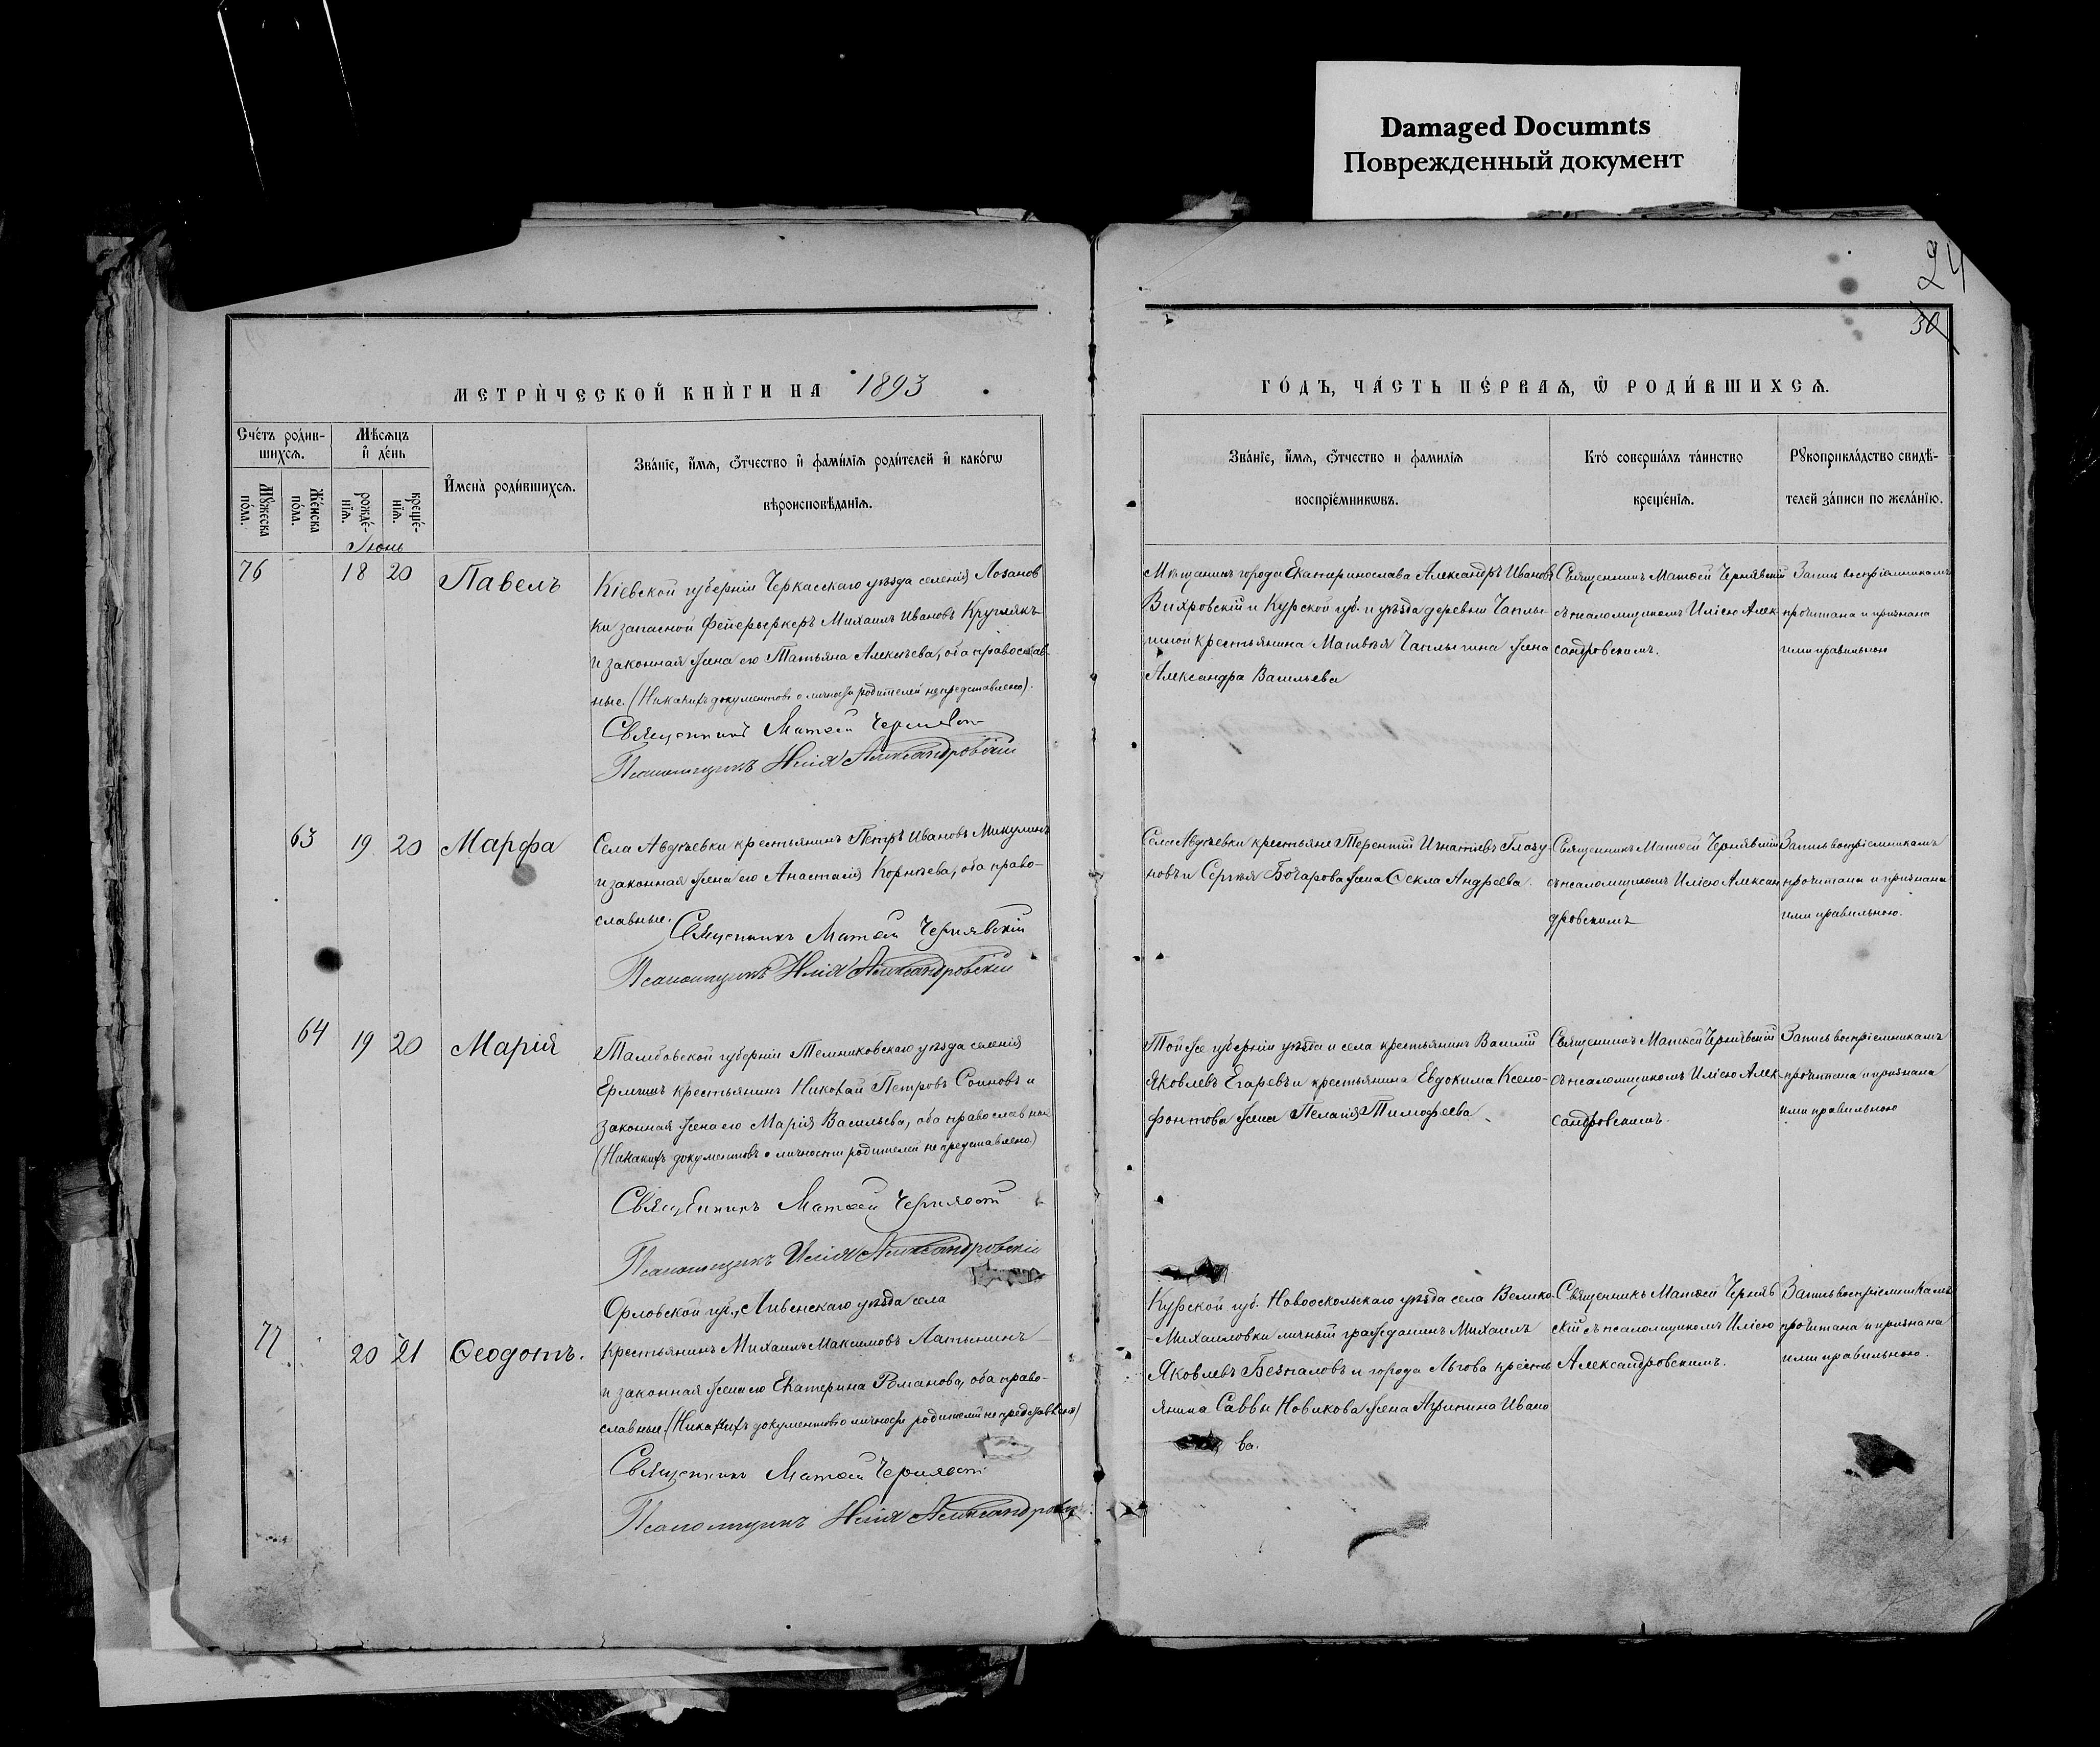 Damaged Documnts
Поврежденный документ
24
30
МЕТРИЧЕСКОЙ КНИГИ НА 1893
Счетъ родив-
шихся.
Мѣсяцъ
и день
Мужеска
пола.
Женска
пола.
рожде-
нія.
креще-
нія.
Имена родившихся.
Званіе, имя, отчество и фамилія родителей и какогѡ
вѣроисповѣданія.
Іюнь
76 18 20 Павелъ
Кіевской губерніи Черкасскаго уѣзда селенія Лозанов
ки запасной фейерверкеръ Михаилъ Ивановъ Кругляк
и законная жена его Татьяна Алексѣева, оба православ-
ные. (Никакихъ документовъ о личности родителей не представлено).
Священникъ Матѳей Чернявскій
Псаломщикъ Илія Александровскій
63 19 20 Марфа
Села Авдѣевки крестьянинъ Петръ Ивановъ Микулинъ
и законная жена его Анастасія Корнѣева, оба право-
славные.
Священникъ Матѳей Чернявскій
Псаломщикъ Илія Александровскій
64 19 20 Марія
Тамбовской губерніи Темниковскаго уѣзда селенія
Ермишъ крестьянинъ Николай Петровъ Соиновъ и
законная жена его Марія Васильева, оба православные
(Никакихъ документовъ о личности родителей не представлено)
Священникъ Матѳей Чернявскій
Псаломщикъ Илія Александровскій
77 20 21 Ѳеодотъ.
Орловской губ., Ливенскаго уѣзда села
крестьянинъ Михаилъ Максимовъ Латынинъ
и законная жена его Екатерина Романова, оба право-
славные. (Никакихъ документовъ о личности родителей не представлено)
Священникъ Матѳей Чернявскій
Псаломщикъ Илія Александровскій
ГОДЪ, ЧАСТЬ ПЕРВАЯ, Ѿ РОДИВШИХСЯ.
Званіе, имя, отчество и фамилія
воспріемникѡвъ.
Кто совершалъ таинство
крещенія.
Рукоприкладство свидѣ-
телей записи по желанію.
Мѣщанинъ города Екатеринослава Александръ Ивановъ
Вихровскій и Курской губ. и уѣзда деревни Чаплы-
гиной крестьянина Матвѣя Чаплыгина жена
Александра Васильева
Священникъ Матѳей Чернявскій
съ псаломщикомъ Иліею Алек
сандровскимъ.
Запись воспріемникамъ
прочитана и признана
ими правильною
Села Авдѣевки крестьяне Терентій Игнатіевъ Глазу-
новъ и Сергѣя Бочарова жена Ѳекла Андреева.
Священникъ Матѳей Чернявскій
съ псаломщикомъ Иліею Алексан
дровскимъ
Запись воспріемникамъ
прочитана и признана
ими правильною.
Той же губерніи уѣзда и села крестьянинъ Василій
Яковлевъ Егаревъ и крестьянина Евдокима Ксено-
фонтова жена Пелагія Тимофеева
Священникъ Матѳей Чернявскій
съ псаломщикомъ Иліею Алек-
сандровскимъ.
Запись воспріемникамъ
прочитана и признана
ими правильною
Курской губ. Новооскольскаго уѣзда села Велико-
-Михаиловки личный гражданинъ Михаилъ
Яковлевъ Безпаловъ и города Льгова кресть
янина Саввы Новикова жена Агрипина Ивано
ва.
Священникъ Матѳей Черняв
скій съ псаломщикомъ Иліею
Александровскимъ.
Запись воспріемникамъ
прочитана и признана
ими правильною.